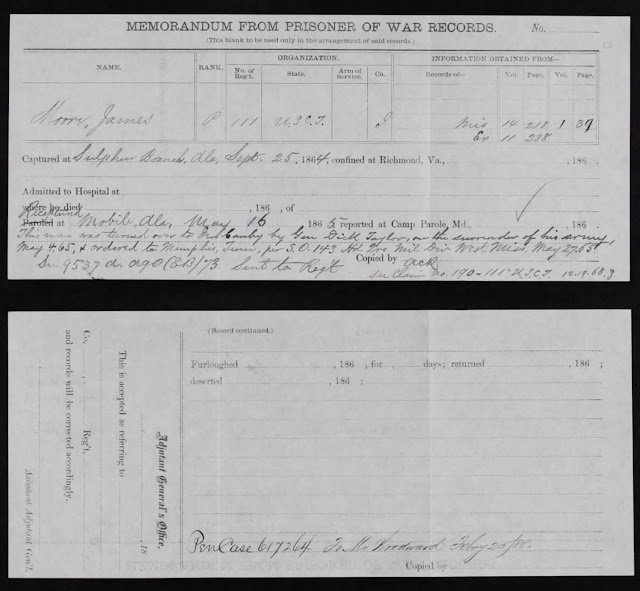 MEMORANDUM FROM PRISONER OF WAR RECORDS. No.
(This blank to be used only in the arrangement of said records.)
NAME. RANK. ORGANIZATION. INFORMATION OBTAINED FROM—
No. of Reg't. State. Arm of Service. Co. Records of— Vol. Page. Vol. Page.
Moore, James P 111 U.S.C.T. Mis 14 218 1 39
Ex 11 238
Captured at Sulphur Branch, Ala, Sept. 25, 1864, confined at Richmond, Va., , 186 .
Admitted to Hospital at
where he died , 186 , of
Paroled at Mobile, Ala, May 16 1865, reported at Camp Parole, Md., , 186 .
This man was turned over to Canby by Gen Dick Taylor, on the surrender of his army,
May 4, 65, & ordered to Memphis, Tenn, per S.O. 143 Mil Div West Miss. May 27, 65
Copied by
See 9537 Sent to Regt
See Claim No. 190-111" U.S.C.T.
(Record continued.)
Furloughed , 186 , for days; returned , 186 ;
deserted , 186 ;
Pen Case 617264 To Mr. Woodward
Copied by
Adjutant General's Office,
, 18
This is accepted as referring to
Co. , Reg't,
and records will be corrected accordingly.
Assistant Adjutant Gen'l.